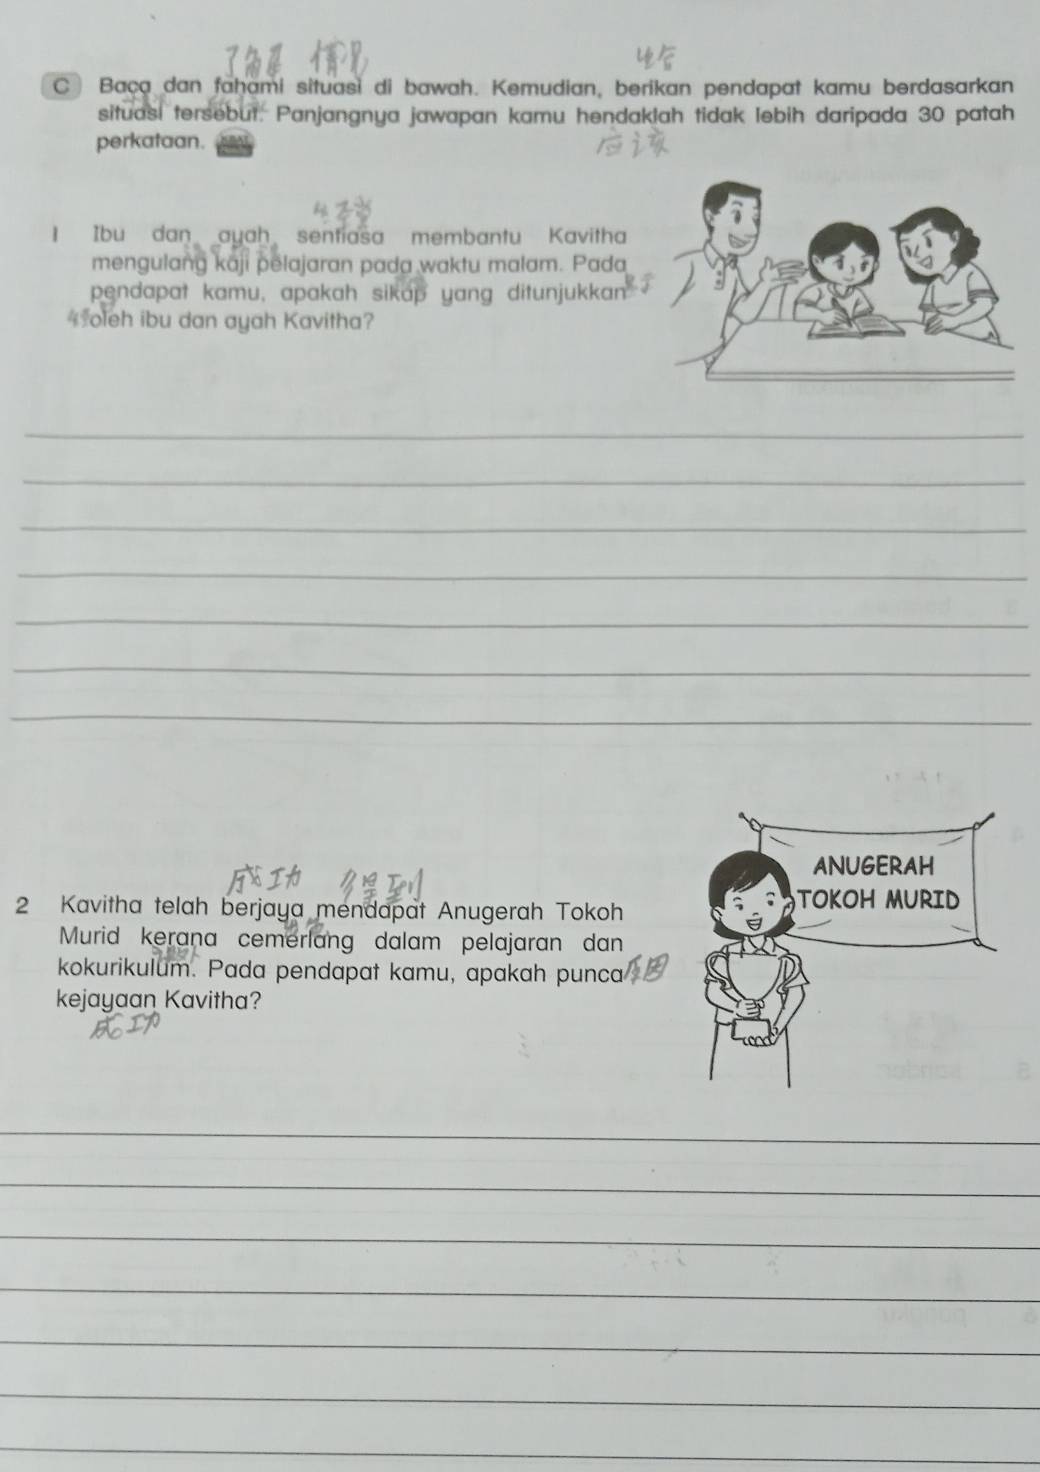 了解 情况 给
C Baca dan fahami situasi di bawah. Kemudian, berikan pendapat kamu berdasarkan
situasi tersebut. Panjangnya jawapan kamu hendaklah tidak lebih daripada 30 patah
perkataan.
应该
1 Ibu dan ayah sentiasa membantu Kavitha
mengulang kaji pelajaran pada waktu malam. Pada
pendapat kamu, apakah sikap yang ditunjukkan
oleh ibu dan ayah Kavitha?
成功 得到
2 Kavitha telah berjaya mendapat Anugerah Tokoh
Murid kerana cemerlang dalam pelajaran dan
kokurikulum. Pada pendapat kamu, apakah punca 原因
kejayaan Kavitha?
成功
ANUGERAH
TOKOH MURID